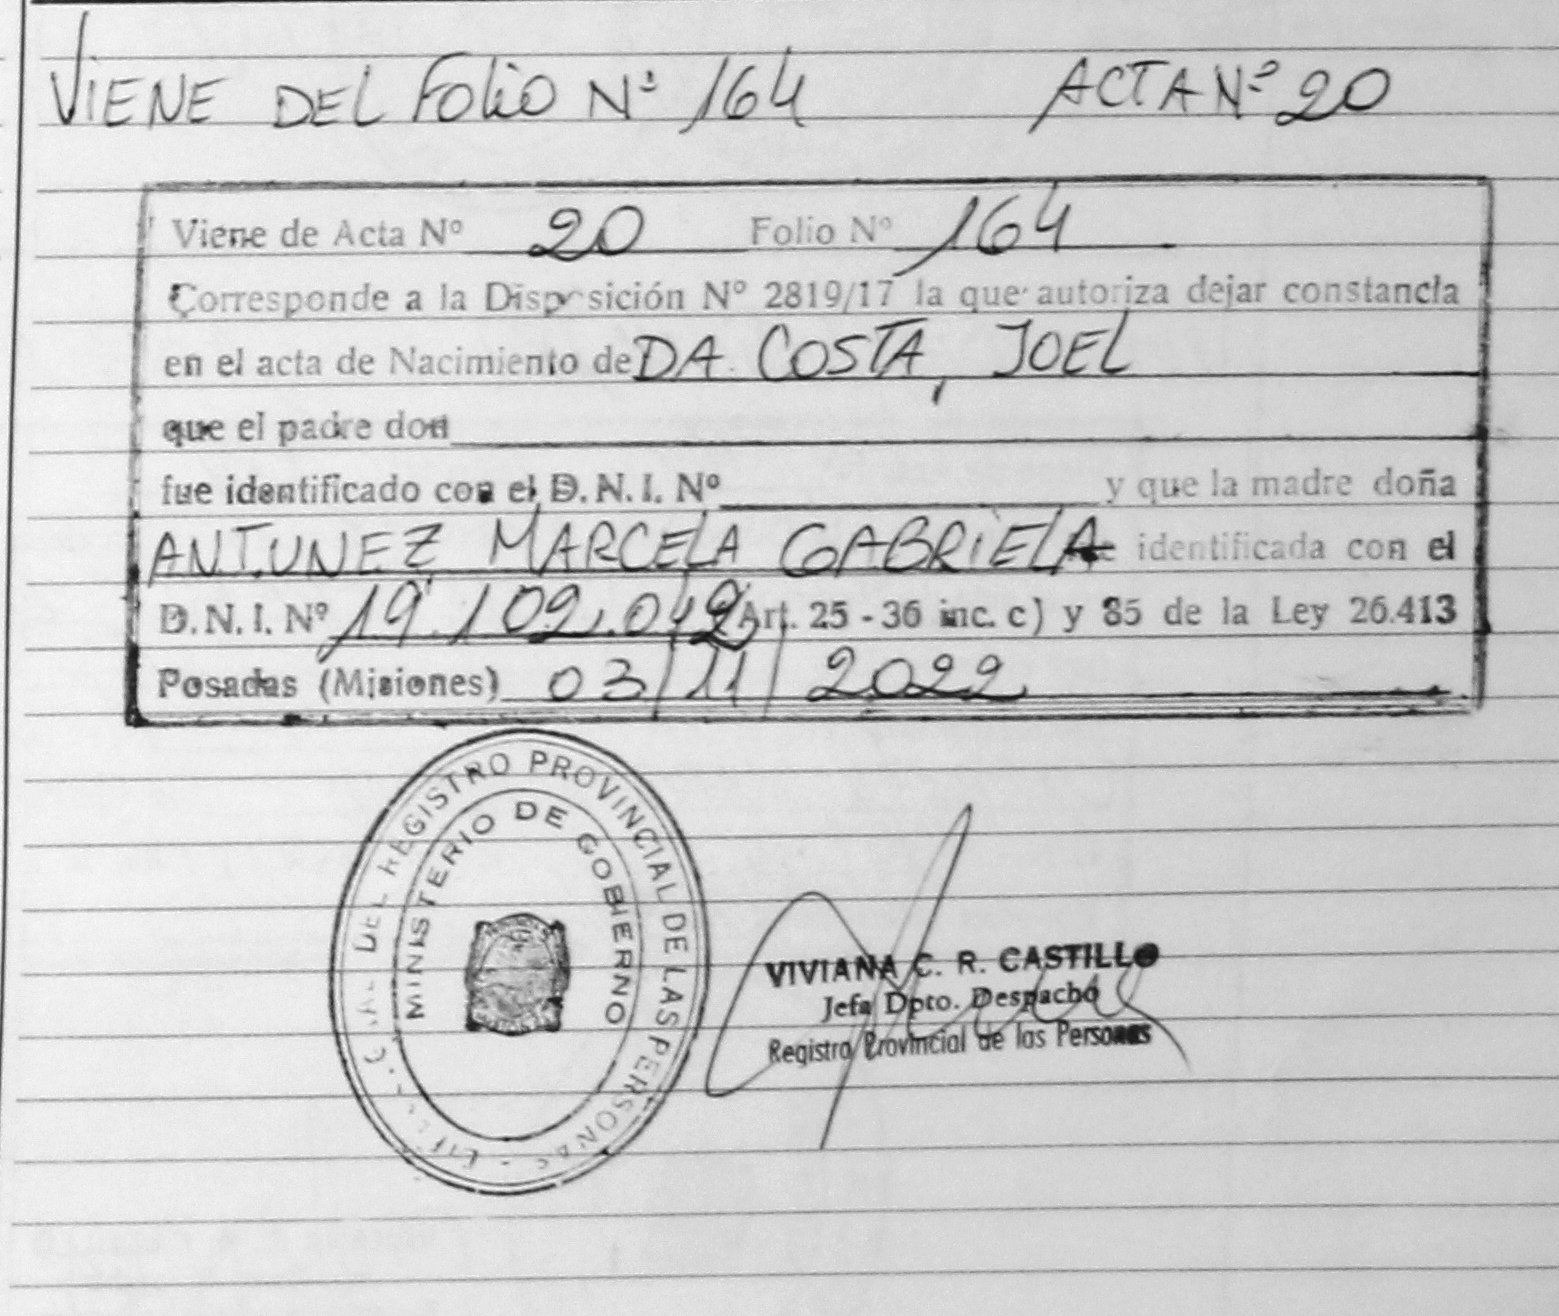 VIENE DEL FOLIO Nº 164 ACTA Nº 20
Viene de Acta Nº 20 Folio Nº 164
Corresponde a la Disposición Nº 2819/17 la que autoriza dejar constancia
en el acta de Nacimiento de DA COSTA, JOEL
que el padre don
fue identificado con el D.N.I. Nº y que la madre doña
ANTUNEZ MARCELA GABRIELA identificada con el
D.N.I. Nº 19.102.042 Art. 25 - 36 inc. c) y 85 de la Ley 26.413
Posadas (Misiones) 03/11/2022
DEL REGISTRO PROVINCIAL DE LAS PERSONAS
MINISTERIO DE GOBIERNO
VIVIANA C. R. CASTILLO
Jefa Dpto. Despacho
Registro Provincial de las Personas